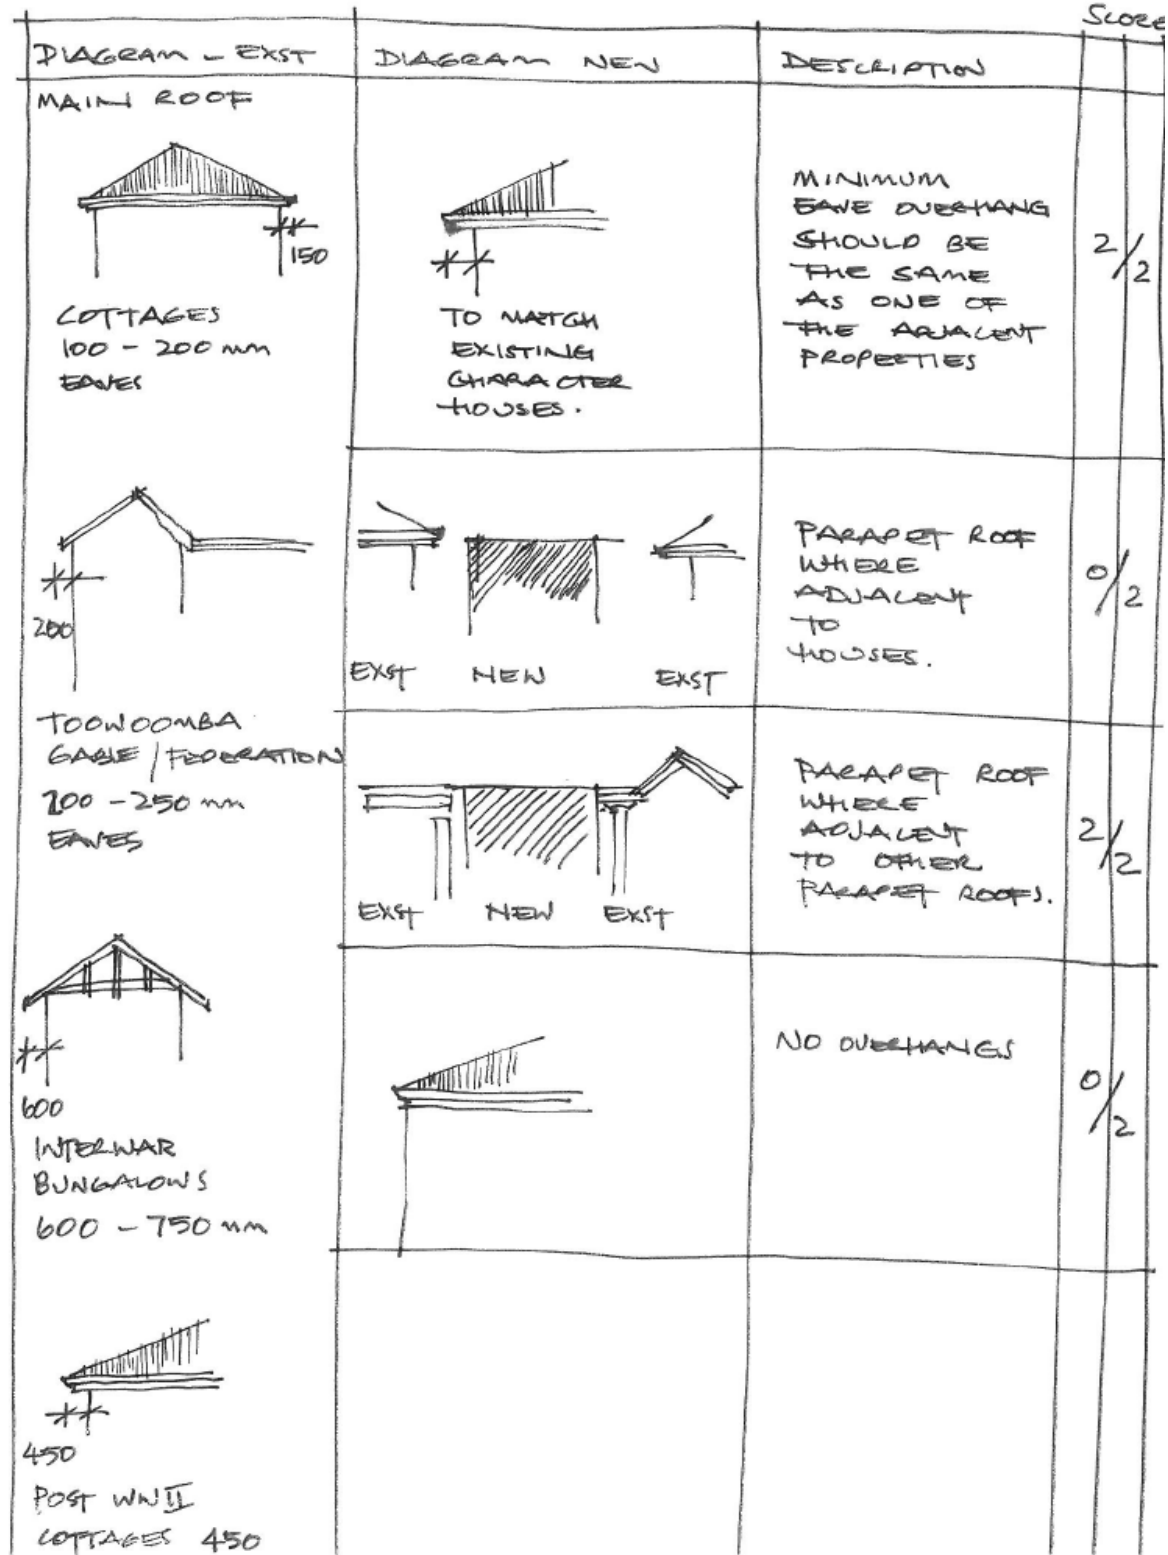 SCORE
DIAGRAM - EXST
DIAGRAM NEW
DESCRIPTION
MAIN ROOF
150
COTTAGES
100 - 200 mm
EAVES
TO MATCH
EXISTING
CHARACTER
HOUSES.
MINIMUM
EAVE OVERHANG
SHOULD BE
THE SAME
AS ONE OF
THE ADJACENT
PROPERTIES
2/2
200
TOOWOOMBA
GABLE / FEDERATION
200 - 250 mm
EAVES
EXST NEW EXST
PARAPET ROOF
WHERE
ADJACENT
TO
HOUSES.
0/2
EXST NEW EXST
PARAPET ROOF
WHERE
ADJACENT
TO OTHER
PARAPET ROOFS.
2/2
600
INTERWAR
BUNGALOWS
600 - 750 mm
NO OVERHANGS
0/2
450
POST WWII
COTTAGES 450